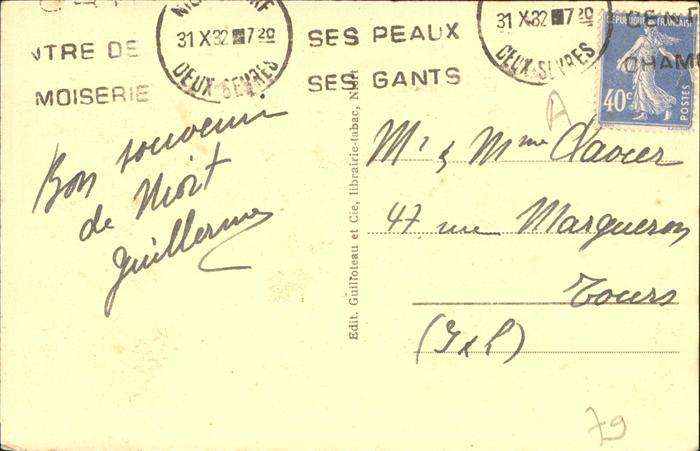 NTRE DE
MOISERIE
31 X 32 17 20
DEUX-SEVRES
SES PEAUX
SES GANTS
31 X 32 17 20
DEUX-SEVRES
RÉPUBLIQUE FRANÇAISE
40c
POSTES
CHAMO
A
Bon souvenir
de Niort
Guillerme
Edit. Guilloteau et Cie, librairie-tabac, Niort
Mr & Mme
47 rue Margueron
Tours
(I & L)
79